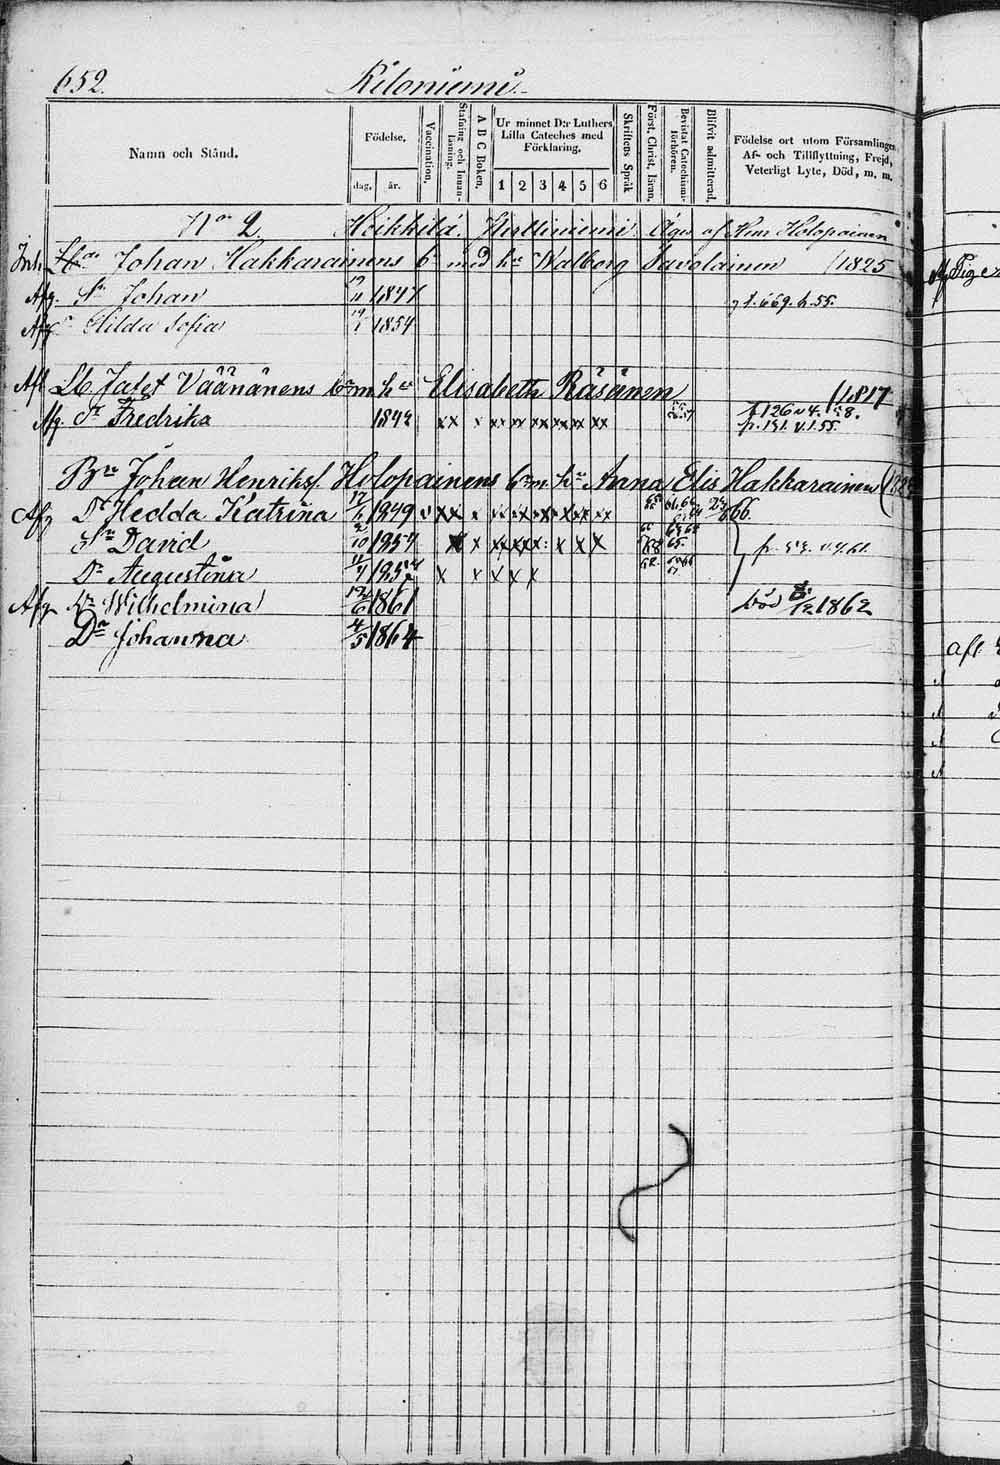 652. Kiloniemi.
Namn och Stånd.
Födelse.
dag. år.
Vaccination.
Stafning och Innanläsning.
A B C Boken.
Ur minnet D:r Luthers Lilla Cateches med Förklaring.
1 2 3 4 5 6
Skriftens Språk.
Först. Christ. läran.
Bevistat Catechismiförhören.
Blifvit admitterad.
Födelse ort utom Församlingen,
Af- och Tillflyttning, Frejd,
Veterligt Lyte, Död, m. m.
No 2. Heikkilä. Hirttiniemi. Äges af Henr Holopainen
Inh Johan Hakkarainens bn med hu Walborg Savolainen (1825
Afg. Sn Johan 1847 p. 669. h. 55.
Afg Hilda Sofia 1854
Afl Lb Jafet Väänänens bn m hu Elisabeth Räsänen (1817
Afg. Dr Fredrika 1842 xx x xx xx xx xx xx xx p. 191. v. 1. 55.
Bn Johan Henrikss Holopainens bn m. hu Anna Elis Hakkarainen
Afg Dr Hedda Katrina 1849 866.
Sn David 1857
Dr Augustina 1857 x x x x x
Afg Dr Wilhelmina 1861 död 1862
Dr Johanna 4/5 1864